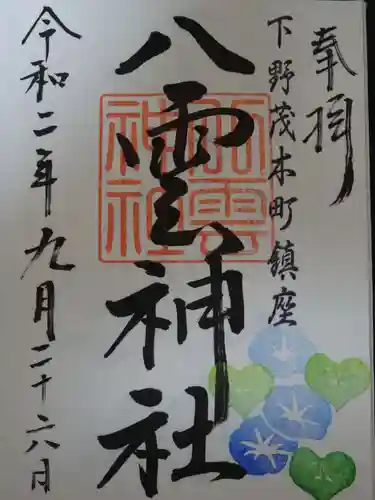 奉拝
下野茂木町鎮座
八雲神社
令和二年九月二十六日
八雲神社